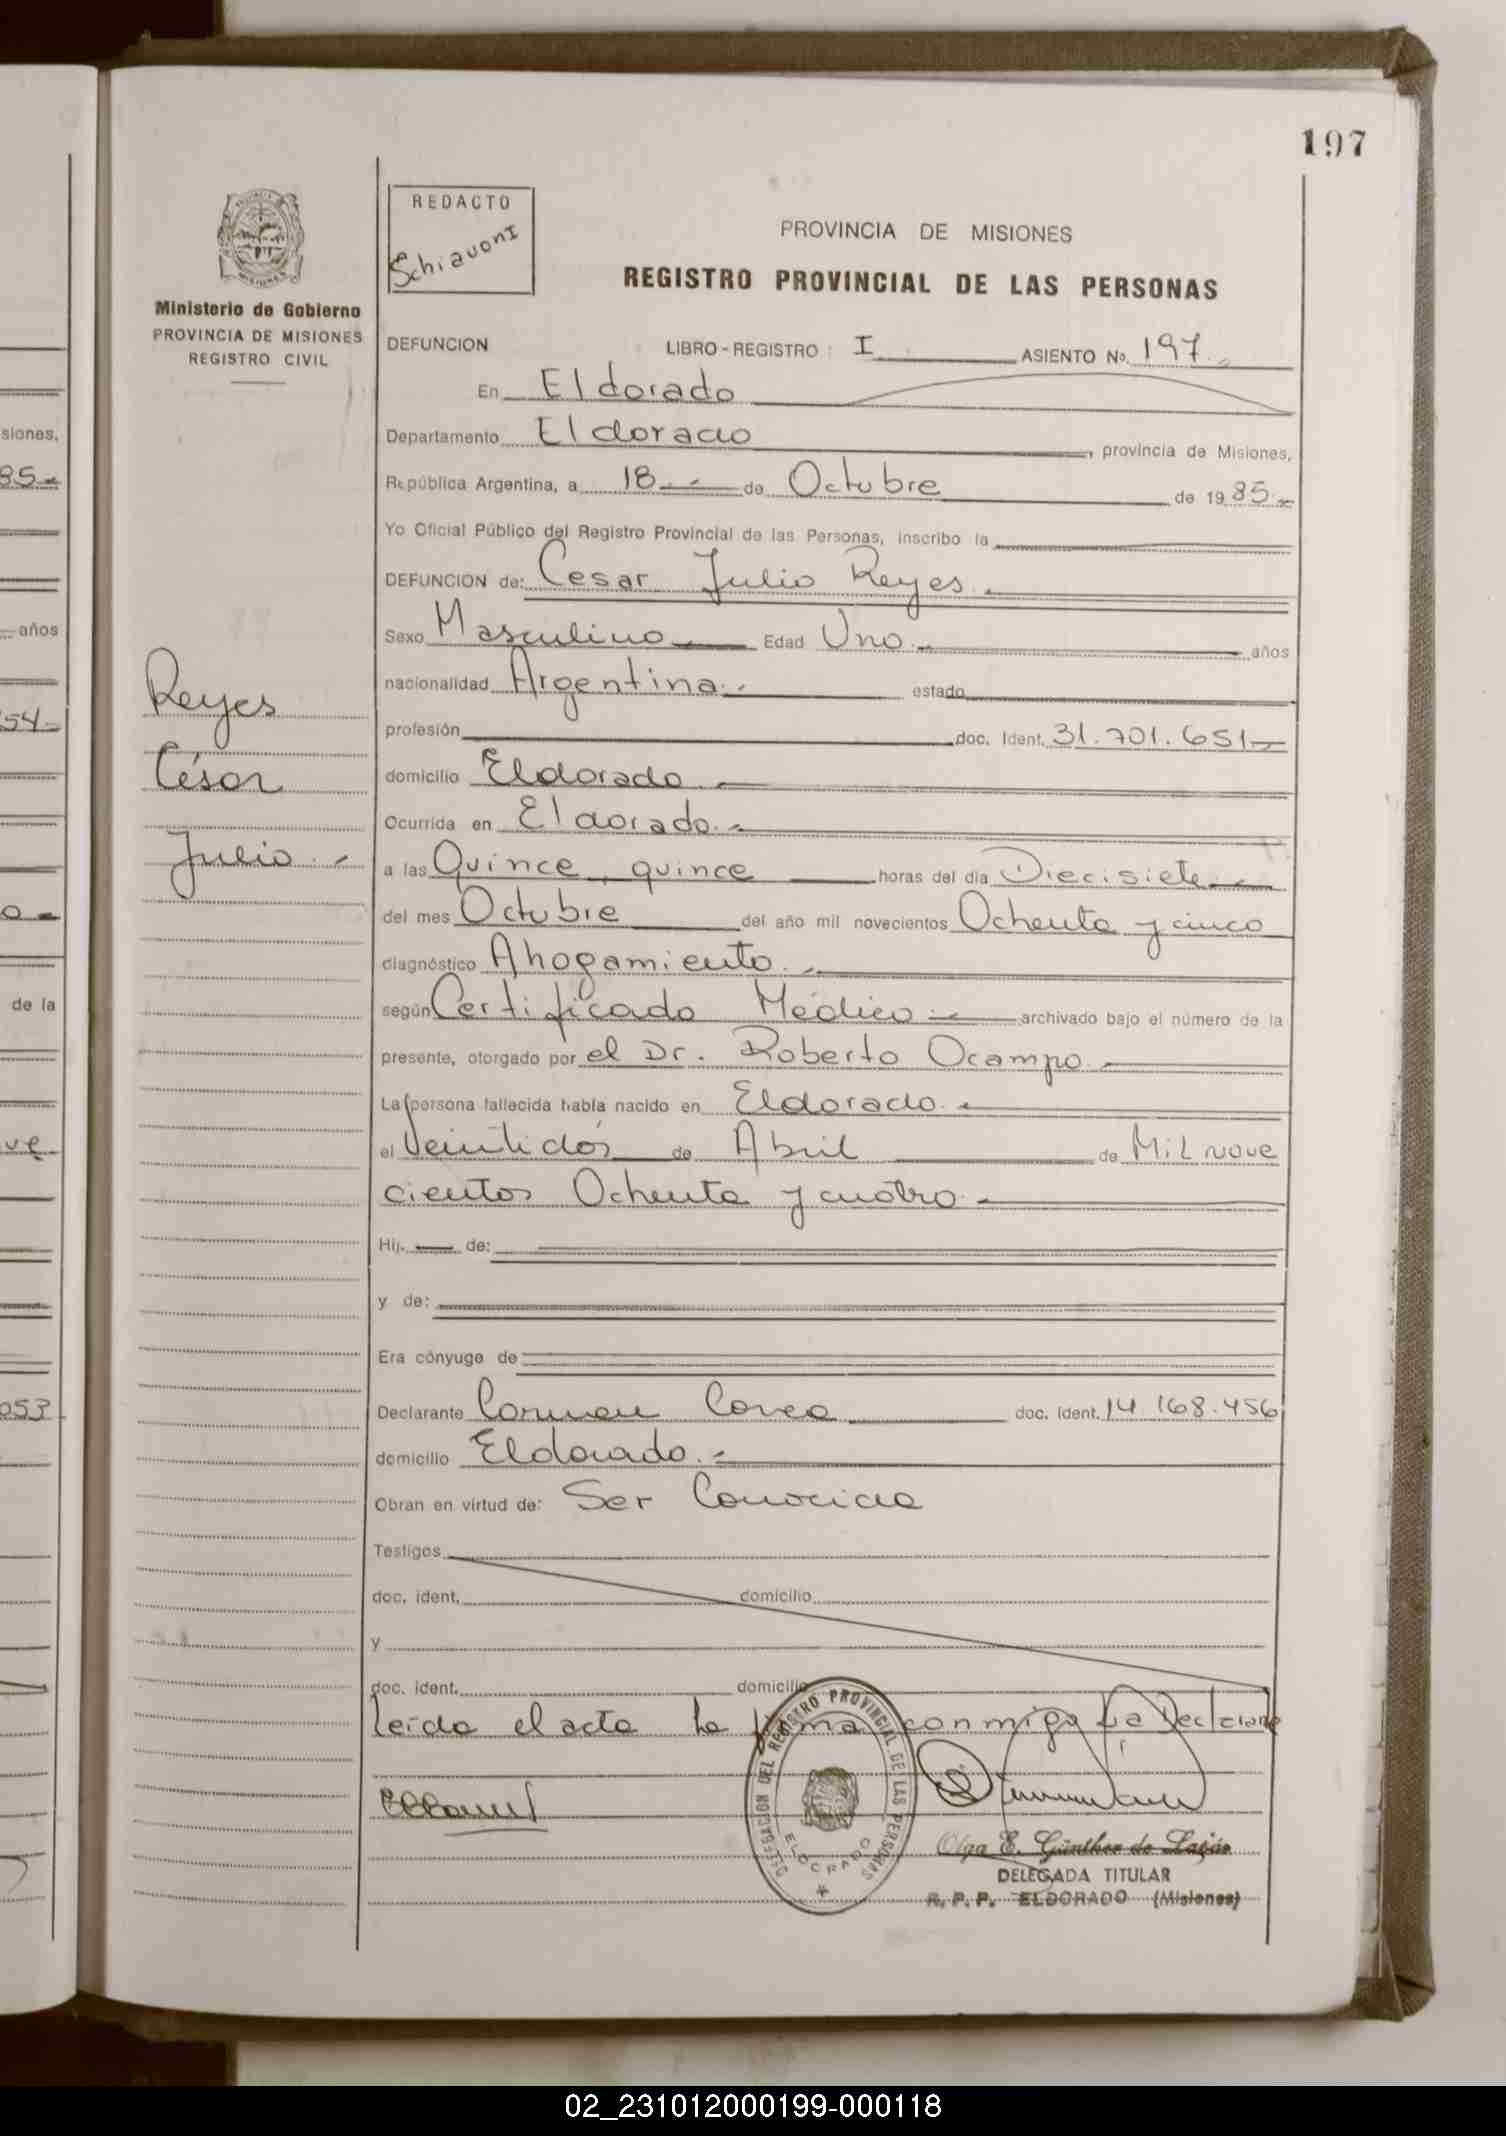 197
REDACTO
Schiavoni
PROVINCIA DE MISIONES
REGISTRO PROVINCIAL DE LAS PERSONAS
Ministerio de Gobierno
PROVINCIA DE MISIONES
REGISTRO CIVIL
DEFUNCION LIBRO-REGISTRO: I ASIENTO No. 197
En Eldorado
Departamento Eldorado, provincia de Misiones,
República Argentina, a 18 de Octubre de 1985
Yo Oficial Público del Registro Provincial de las Personas, inscribo la
DEFUNCION de: Cesar Julio Reyes
Sexo Masculino Edad Uno años
nacionalidad Argentina estado
profesión doc. Ident. 31.701.651
domicilio Eldorado
Ocurrida en Eldorado
a las Quince, quince horas del día Diecisiete
del mes Octubre del año mil novecientos Ochenta y cinco
diagnóstico Ahogamiento
según Certificado Médico archivado bajo el número de la
presente, otorgado por el Dr. Roberto Ocampo
La persona fallecida había nacido en Eldorado
el Veintidós de Abril de Mil nove
cientos Ochenta y cuatro
Hij. de:
y de:
Era cónyuge de
Declarante Carmen Correa doc. Ident. 14.168.456
domicilio Eldorado
Obran en virtud de: Ser Conocida
Testigos
doc. ident. domicilio
y
doc. ident. domicilio
Leída el acta la firma conmigo La Declarante
DELEGACION DEL REGISTRO PROVINCIAL DE LAS PERSONAS
ELDORADO
Olga E. Günther de
DELEGADA TITULAR
R. P. P. ELDORADO (Misiones)
Reyes
César
Julio
siones,
85
años
54
0
de la
ve
053
02_231012000199-000118